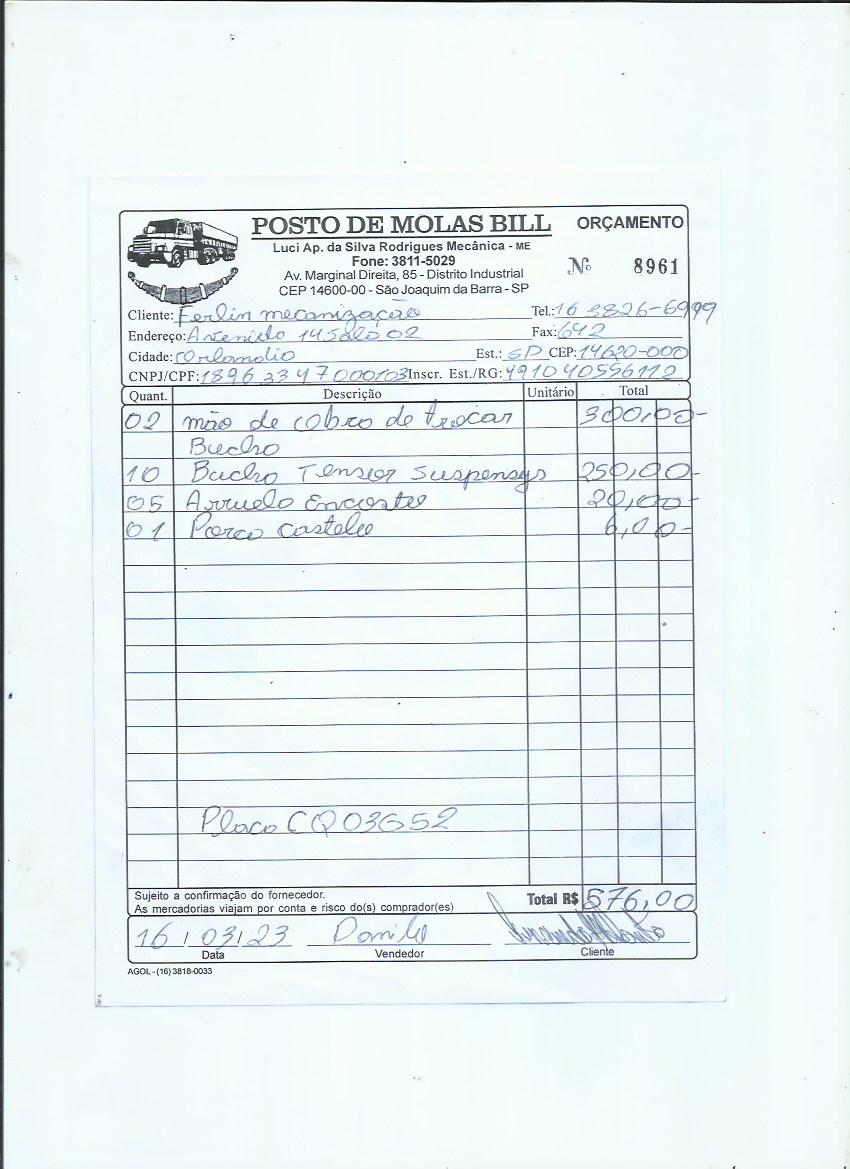 POSTO DE MOLAS BILL ORÇAMENTO
Luci Ap. da Silva Rodrigues Mecânica - ME
Fone: 3811-5029
Av. Marginal Direita, 85 - Distrito Industrial
Nº 8961
CEP 14600-00 - São Joaquim da Barra - SP
Cliente: Ferlin mecanização Tel.: 16 3826-6999
Endereço: Avenido 14 Salo 02 Fax: 642
Cidade: Orlandio Est.: SP CEP: 14620-000
CNPJ/CPF: 18962347000103 Inscr. Est./RG: 491040556112
Quant. Descrição Unitário Total
02 mão de obro de trocar 300,00-
Bucho
10 Bucho Tensor Suspensys 250,00-
05 Arruelo Encosto 20,00-
01 Porco Castelo 6,00-
Placo CQ03G52
Sujeito a confirmação do fornecedor.
As mercadorias viajam por conta e risco do(s) comprador(es) Total R$ 576,00
16/03/23 Danilo
Data Vendedor Cliente
AGOL - (16) 3818-0033